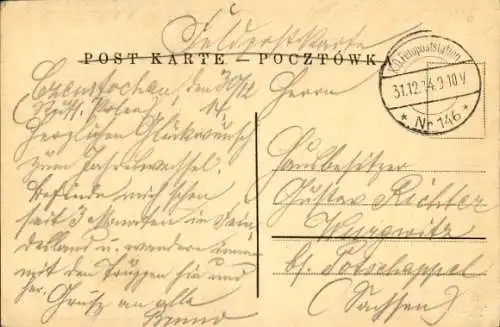 Feldpostkarte
POST KARTE – POCZTÓWKA
K.D. Feldpoststation
31.12.14. 9-10 V
* Nr. 146 *
Czenstochau, den 30/12
(Russ. Polen) 14.
Herzlichen Glückwunsch
zum Jahreswechsel.
Befinde mich schon
seit 3 Monaten in
Feindesland u. wandere
mit den Truppen hin und
her. Gruß an alle
Bruno
Herrn
Hausbesitzer
Gustav Richter
Wurgwitz
bf. Potschappel
(Sachsen)